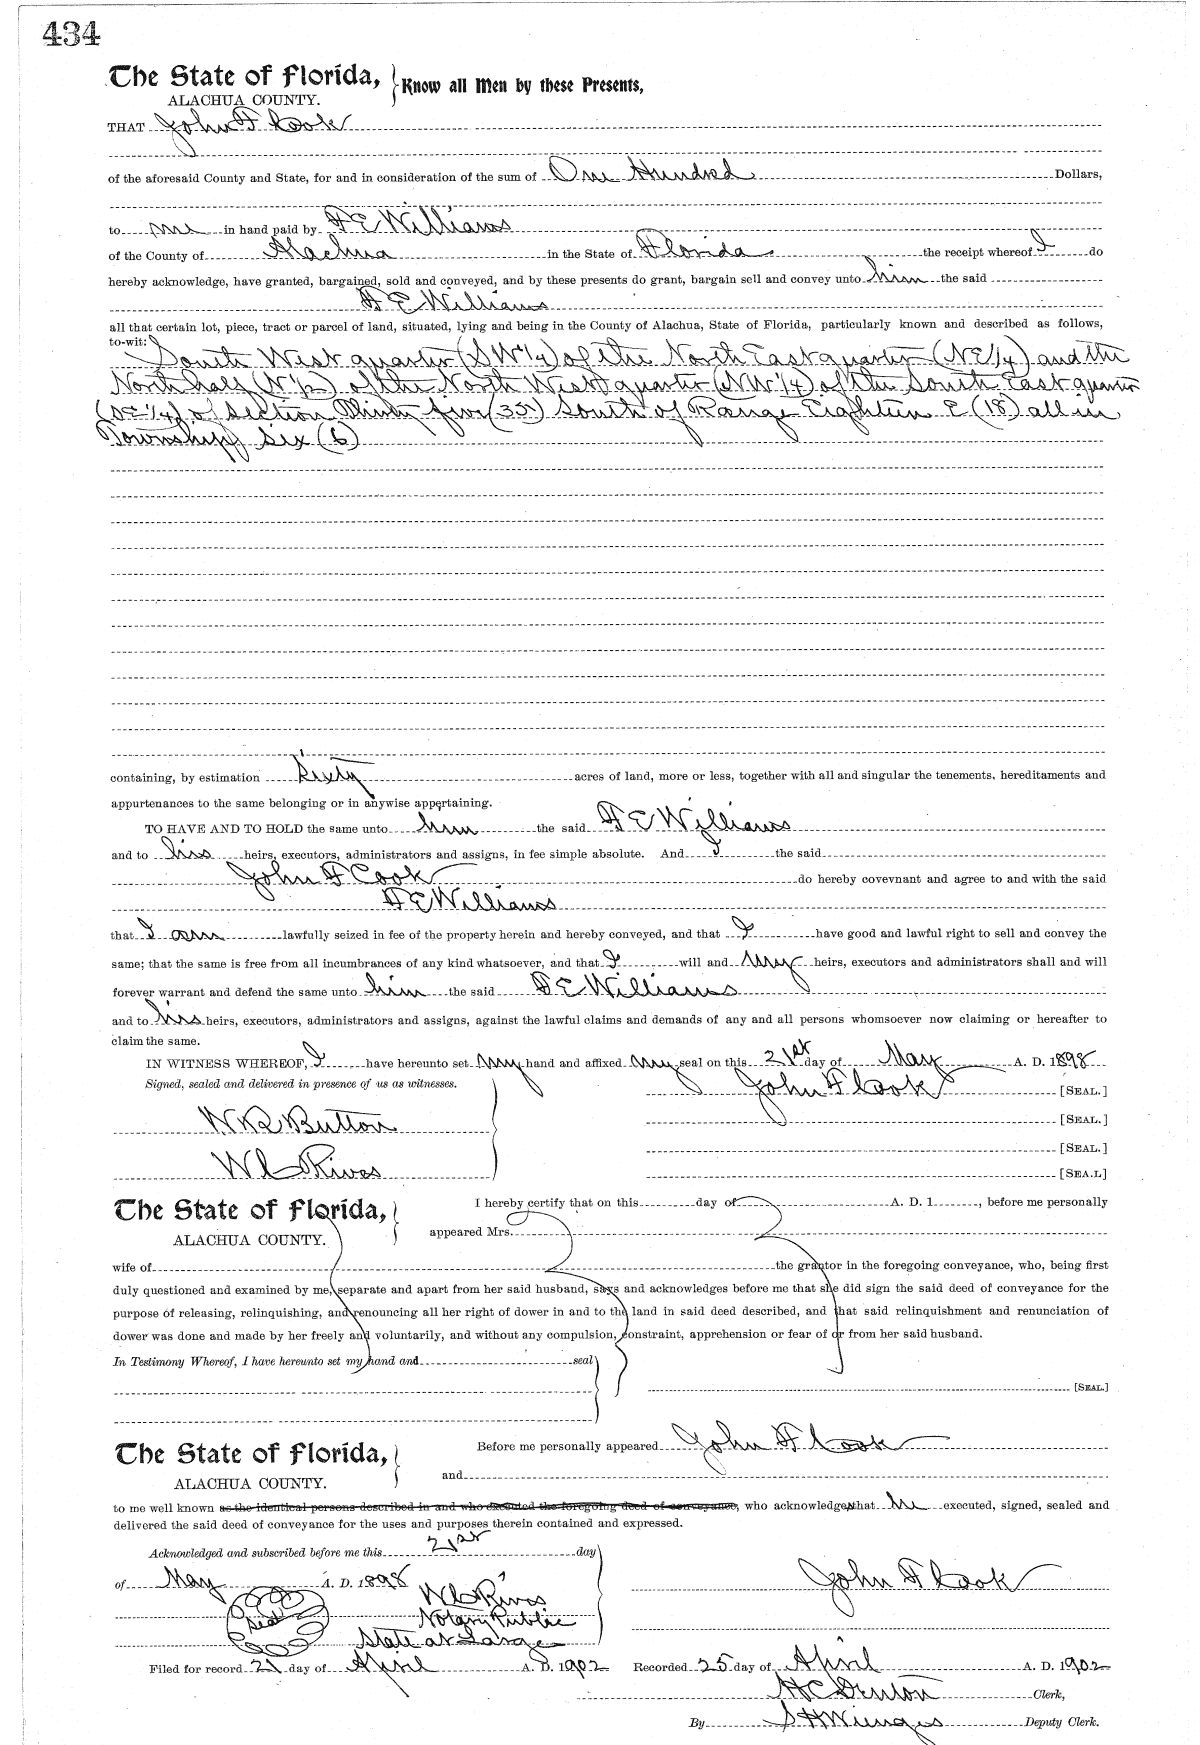 434
The State of Florida, Know all Men by these Presents,
ALACHUA COUNTY.
THAT John F Cook
of the aforesaid County and State, for and in consideration of the sum of One Hundred Dollars,
to me in hand paid by F E Williams
of the County of Alachua in the State of Florida the receipt whereof I do
hereby acknowledge, have granted, bargained, sold and conveyed, and by these presents do grant, bargain sell and convey unto him the said
F E Williams
all that certain lot, piece, tract or parcel of land, situated, lying and being in the County of Alachua, State of Florida, particularly known and described as follows,
to-wit:
South West quarter (SW 1/4) of the North East quarter (NE 1/4) and the
North half (N 1/2) of the North West quarter (NW 1/4) of the South East quarter
(SE 1/4) of Section Thirty five (35) South of Range Eighteen E (18) all in
Township six (6)
containing, by estimation Sixty acres of land, more or less, together with all and singular the tenements, hereditaments and
appurtenances to the same belonging or in anywise appertaining.
TO HAVE AND TO HOLD the same unto him the said F E Williams
and to his heirs, executors, administrators and assigns, in fee simple absolute. And I the said
John F Cook do hereby covevnant and agree to and with the said
F E Williams
that I am lawfully seized in fee of the property herein and hereby conveyed, and that I have good and lawful right to sell and convey the
same; that the same is free from all incumbrances of any kind whatsoever, and that I will and my heirs, executors and administrators shall and will
forever warrant and defend the same unto him the said F E Williams
and to his heirs, executors, administrators and assigns, against the lawful claims and demands of any and all persons whomsoever now claiming or hereafter to
claim the same.
IN WITNESS WHEREOF, I have hereunto set my hand and affixed my seal on this 21st day of May A. D. 1898
Signed, sealed and delivered in presence of us as witnesses. John F Cook [SEAL.]
W R Button [SEAL.]
[SEAL.]
W L Rivas [SEA.L]
The State of Florida, I hereby certify that on this day of A. D. 1 , before me personally
ALACHUA COUNTY. appeared Mrs.
wife of the grantor in the foregoing conveyance, who, being first
duly questioned and examined by me, separate and apart from her said husband, says and acknowledges before me that she did sign the said deed of conveyance for the
purpose of releasing, relinquishing, and renouncing all her right of dower in and to the land in said deed described, and that said relinquishment and renunciation of
dower was done and made by her freely and voluntarily, and without any compulsion, constraint, apprehension or fear of or from her said husband.
In Testimony Whereof, I have hereunto set my hand and seal
[SEAL.]
The State of Florida, Before me personally appeared John F Cook
ALACHUA COUNTY. and
to me well known as the identical persons described in and who executed the foregoing deed of conveyance, who acknowledges that he executed, signed, sealed and
delivered the said deed of conveyance for the uses and purposes therein contained and expressed.
Acknowledged and subscribed before me this 21st day
of May A. D. 1898 John F Cook
W L Rivas
seal Notary Public
State at Large
Filed for record 21 day of April A. D. 1902 Recorded 25 day of April A. D. 1902
H C Denton Clerk,
By S H Wienges Deputy Clerk.